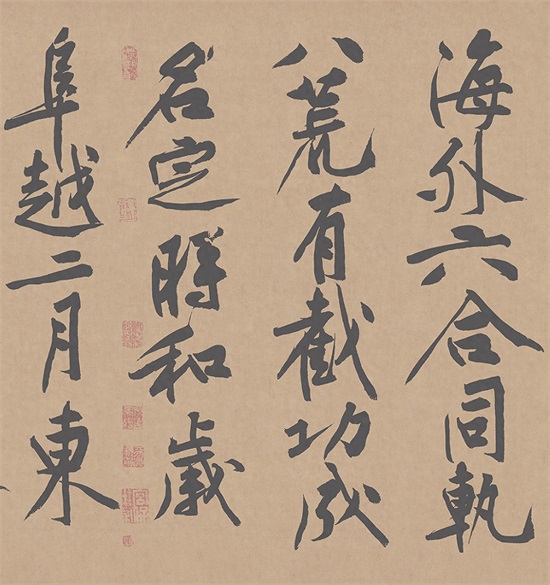 海外六合同軌
八荒有截功成
名定時和歲
阜越二月東